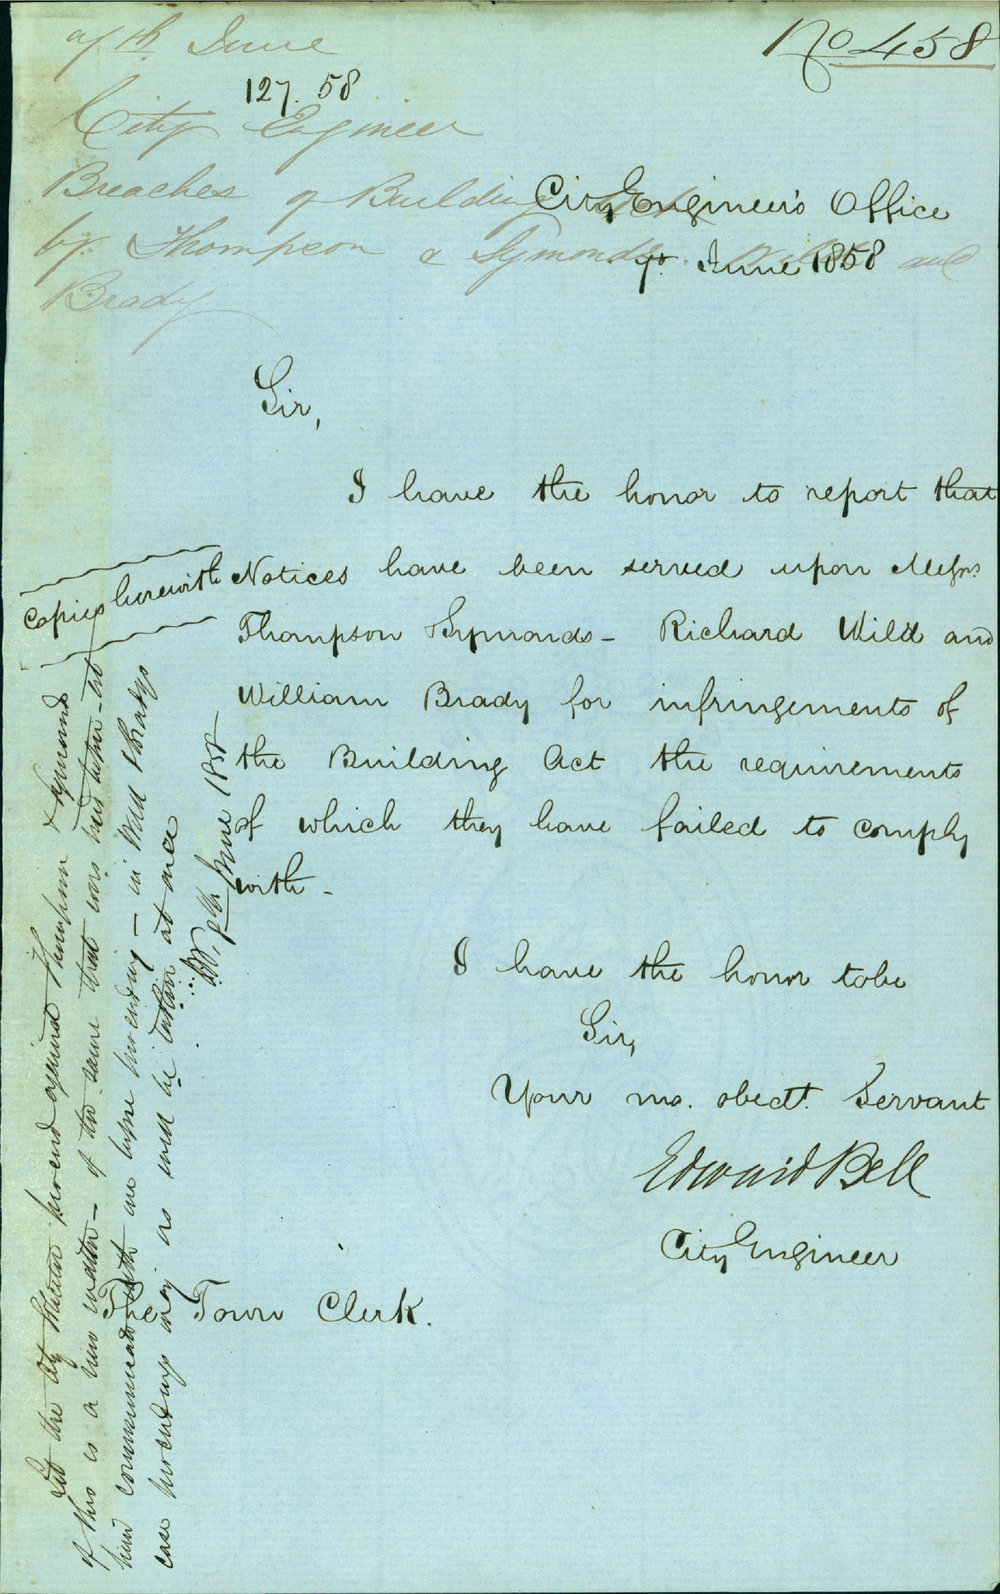 No 458
9th June
127. 58
City Engineer
Breaches of Building Act
by Thompson & Symonds Wild and
Brady
City Engineer's Office
9th June 1858
Sir,
I have the honor to report that
Notices have been served upon Messrs
Thompson Symonds - Richard Wild and
William Brady for infringements of
the Building Act the requirements
of which they have failed to comply
with -
I have the honor tobe
Sir,
Your mo. obedt. Servant
Edward Bell
City Engineer
The Town Clerk.
Copies herewith
Let the City proceed against Thompson & Symonds
of this is a new matter - if the same that was had before - let
him communicate with me before proceeding - in Wild & Bradys
case proceedings may as well be taken at once
9th June 1858